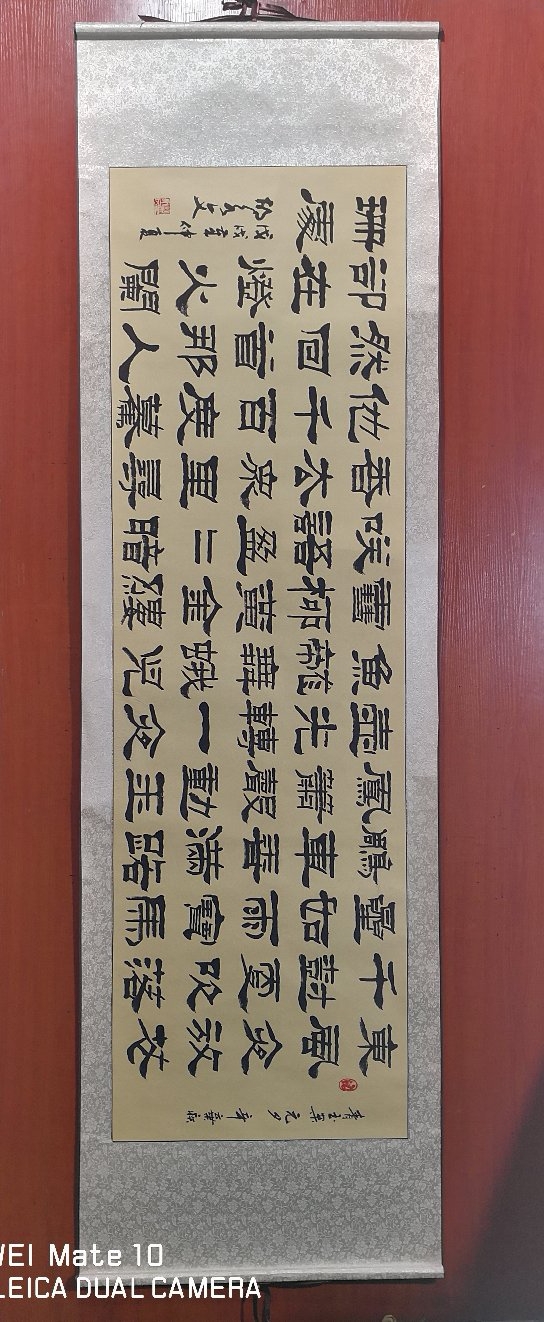 青玉案 元夕 辛棄疾
東風夜放花
千樹更吹落
星如雨寶馬
雕車香滿路
鳳簫聲動玉
壺光轉一夜
魚龍舞蛾兒
雪柳黃金縷
笑語盈二暗
香去眾里尋
他千百度驀
然回首那人
卻在燈火闌
珊處
戊戌年仲夏
WEI Mate 10
LEICA DUAL CAMERA